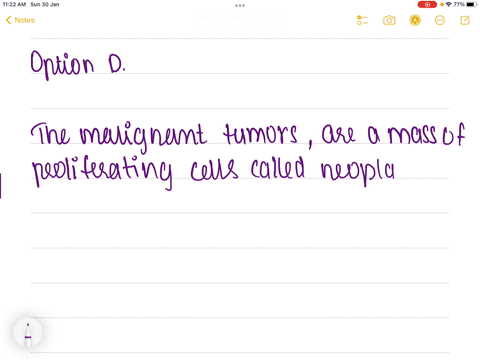 11:22 AM Sun 30 Jan
77%
Notes
Option D.
The malignant tumors, are a mass of
proliferating cells called neopla